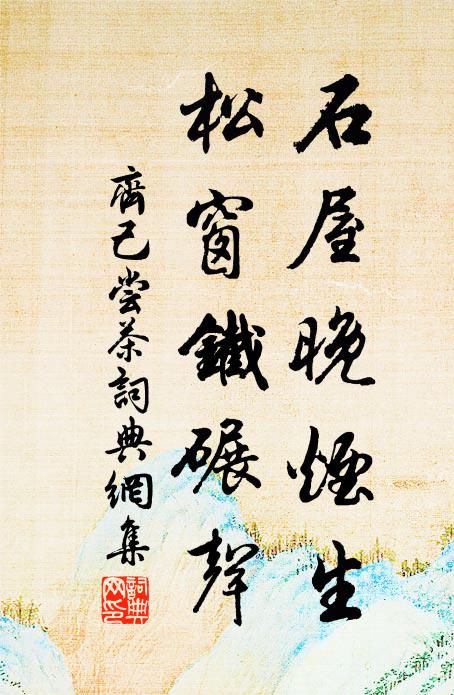 石屋晚煙生
松窗鐵碾聲
齊己嘗茶詞典網集
詞典
网印